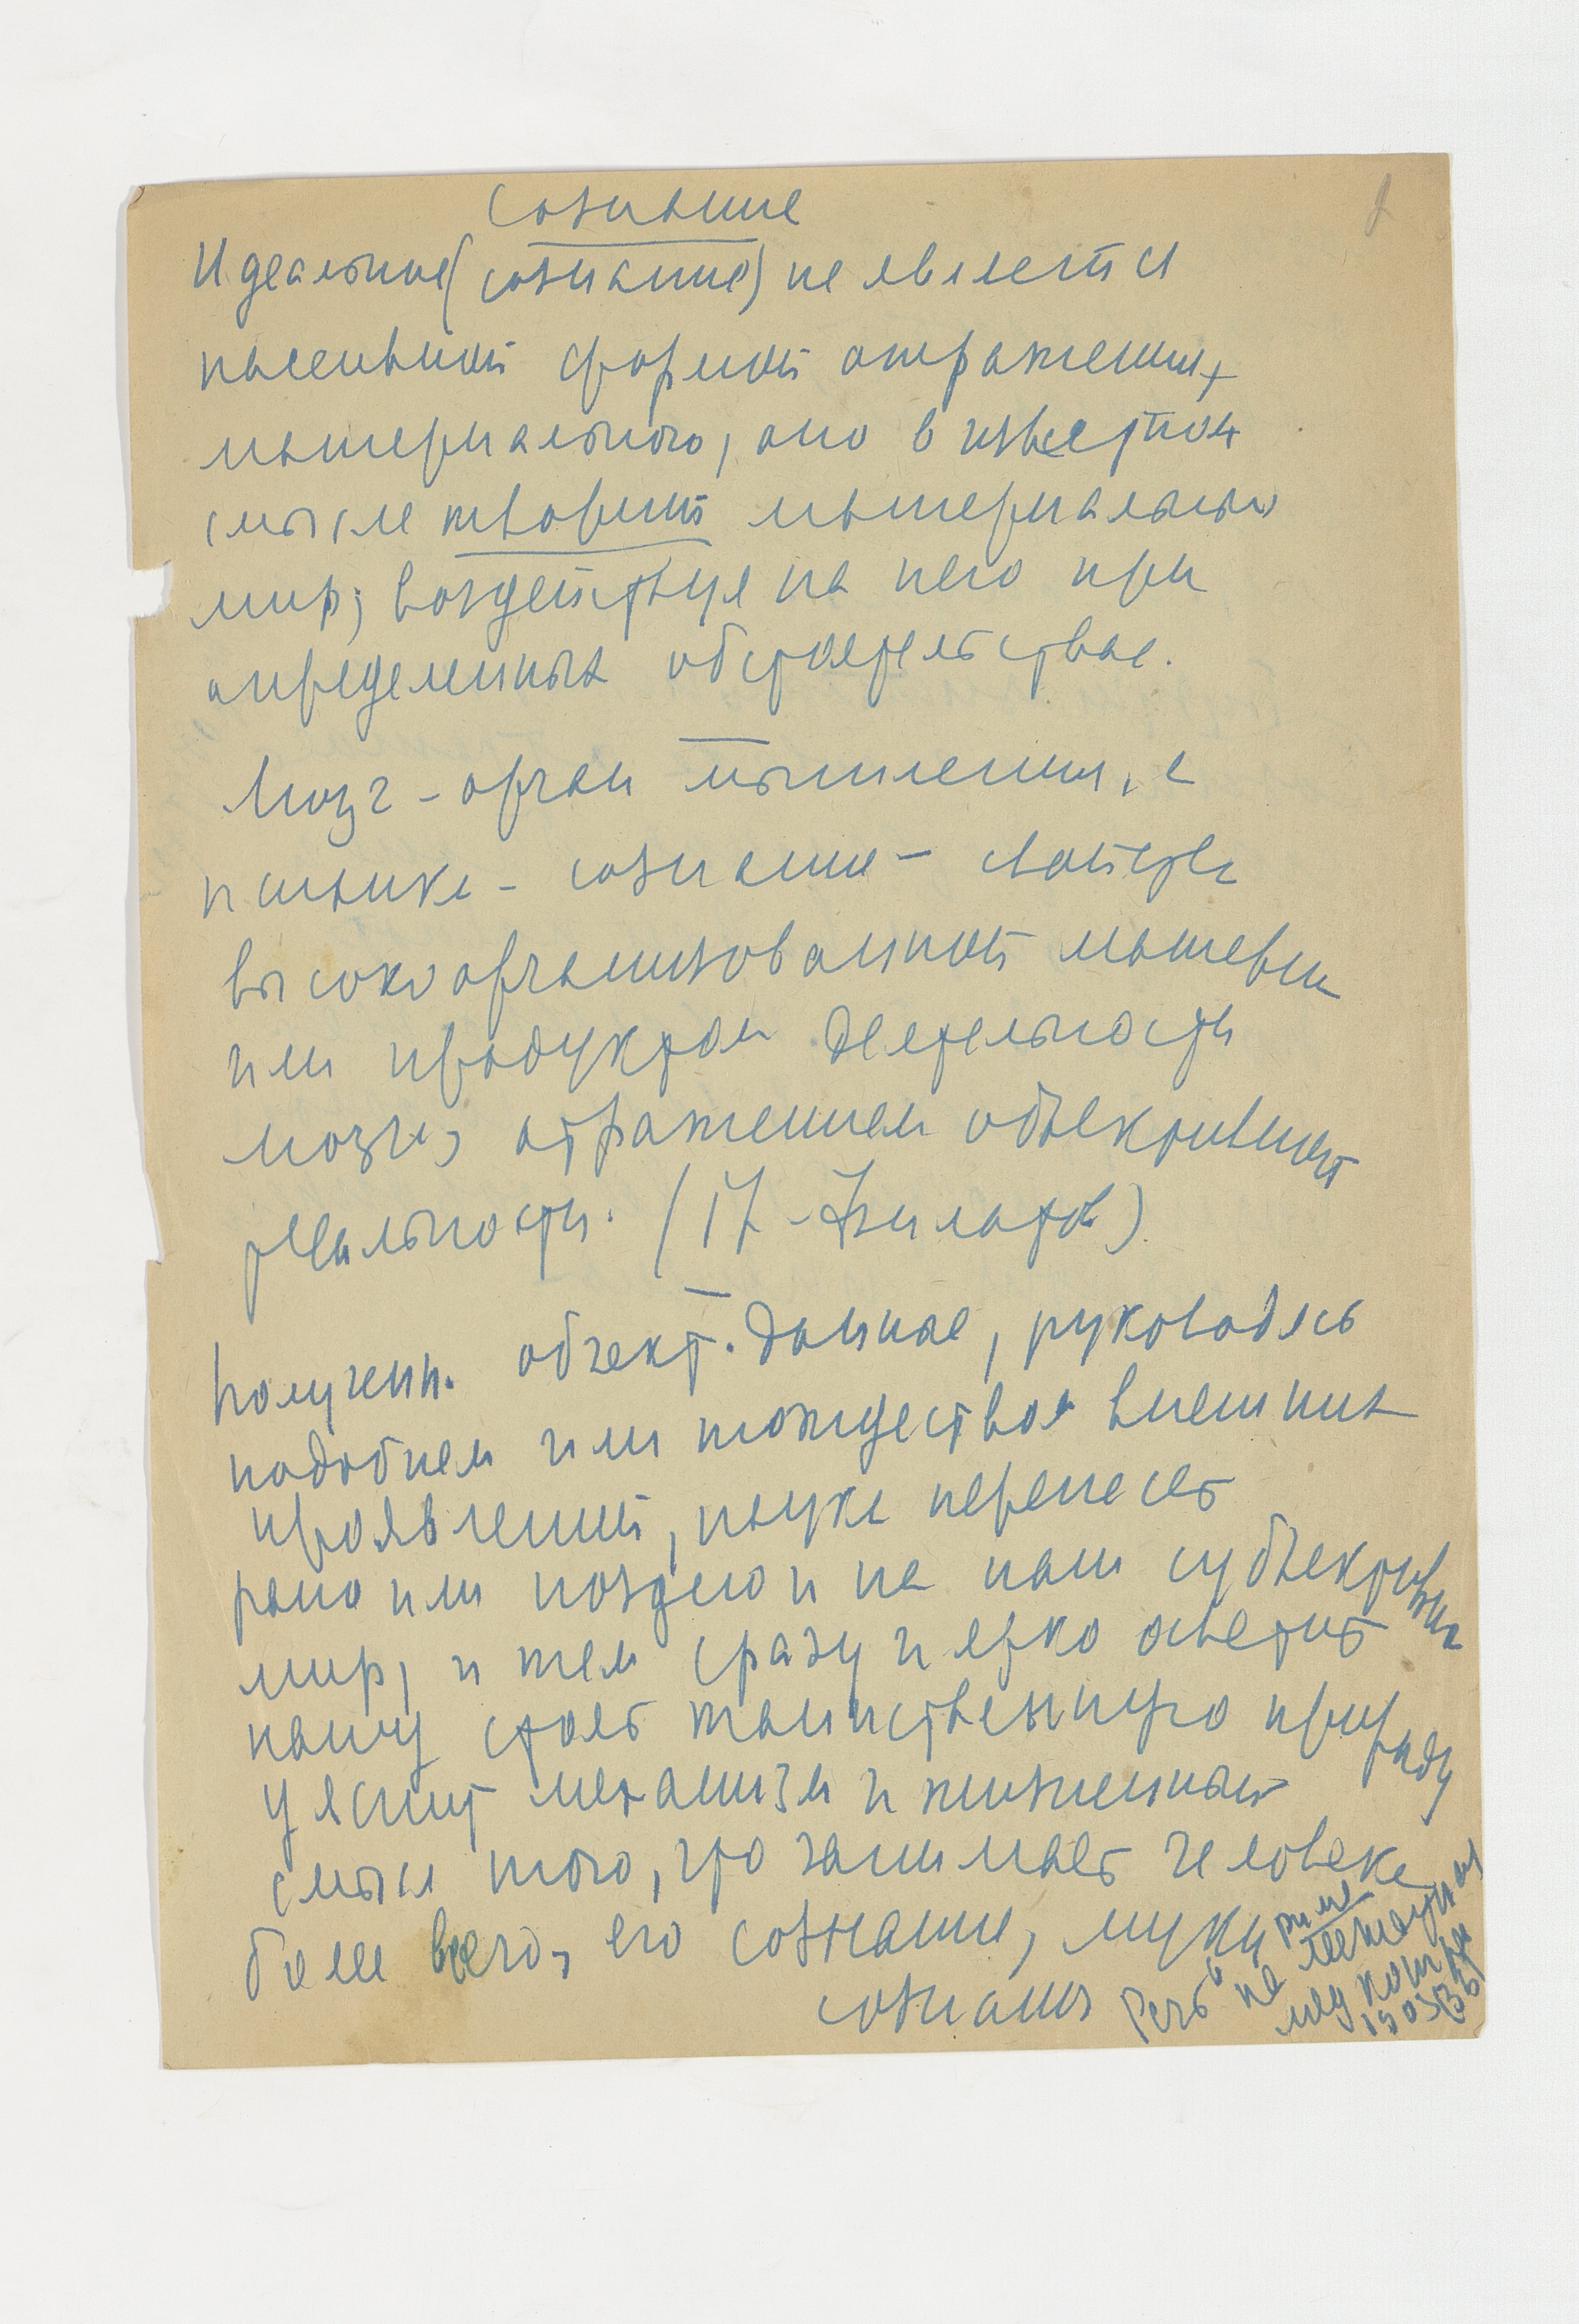 Сознание
Идеальное (сознание) не является
пассивной формой отражения
материального, оно в известном
смысле творит материальный
мир, воздействуя на него при
определенных обстоятельствах.
Мозг - орган мышления, а
психика - сознание - свойства
высокоорганизованной материи
или продуктом деятельности
мозга, отражением объективной
реальности. (17 - Филатов)
Получен. объект. данные, руководясь
подобием или тождеством внешних
проявлений, наука перенесет
рано или поздно и на наш субъективный
мир, и тем сразу и ярко осветит
нашу столь таинственную природу
уяснит механизм и жизненный
смысл того, что занимает человека
более всего, его сознание, муки
сознания Речь в Риме
на междунар
мед конгр
1903